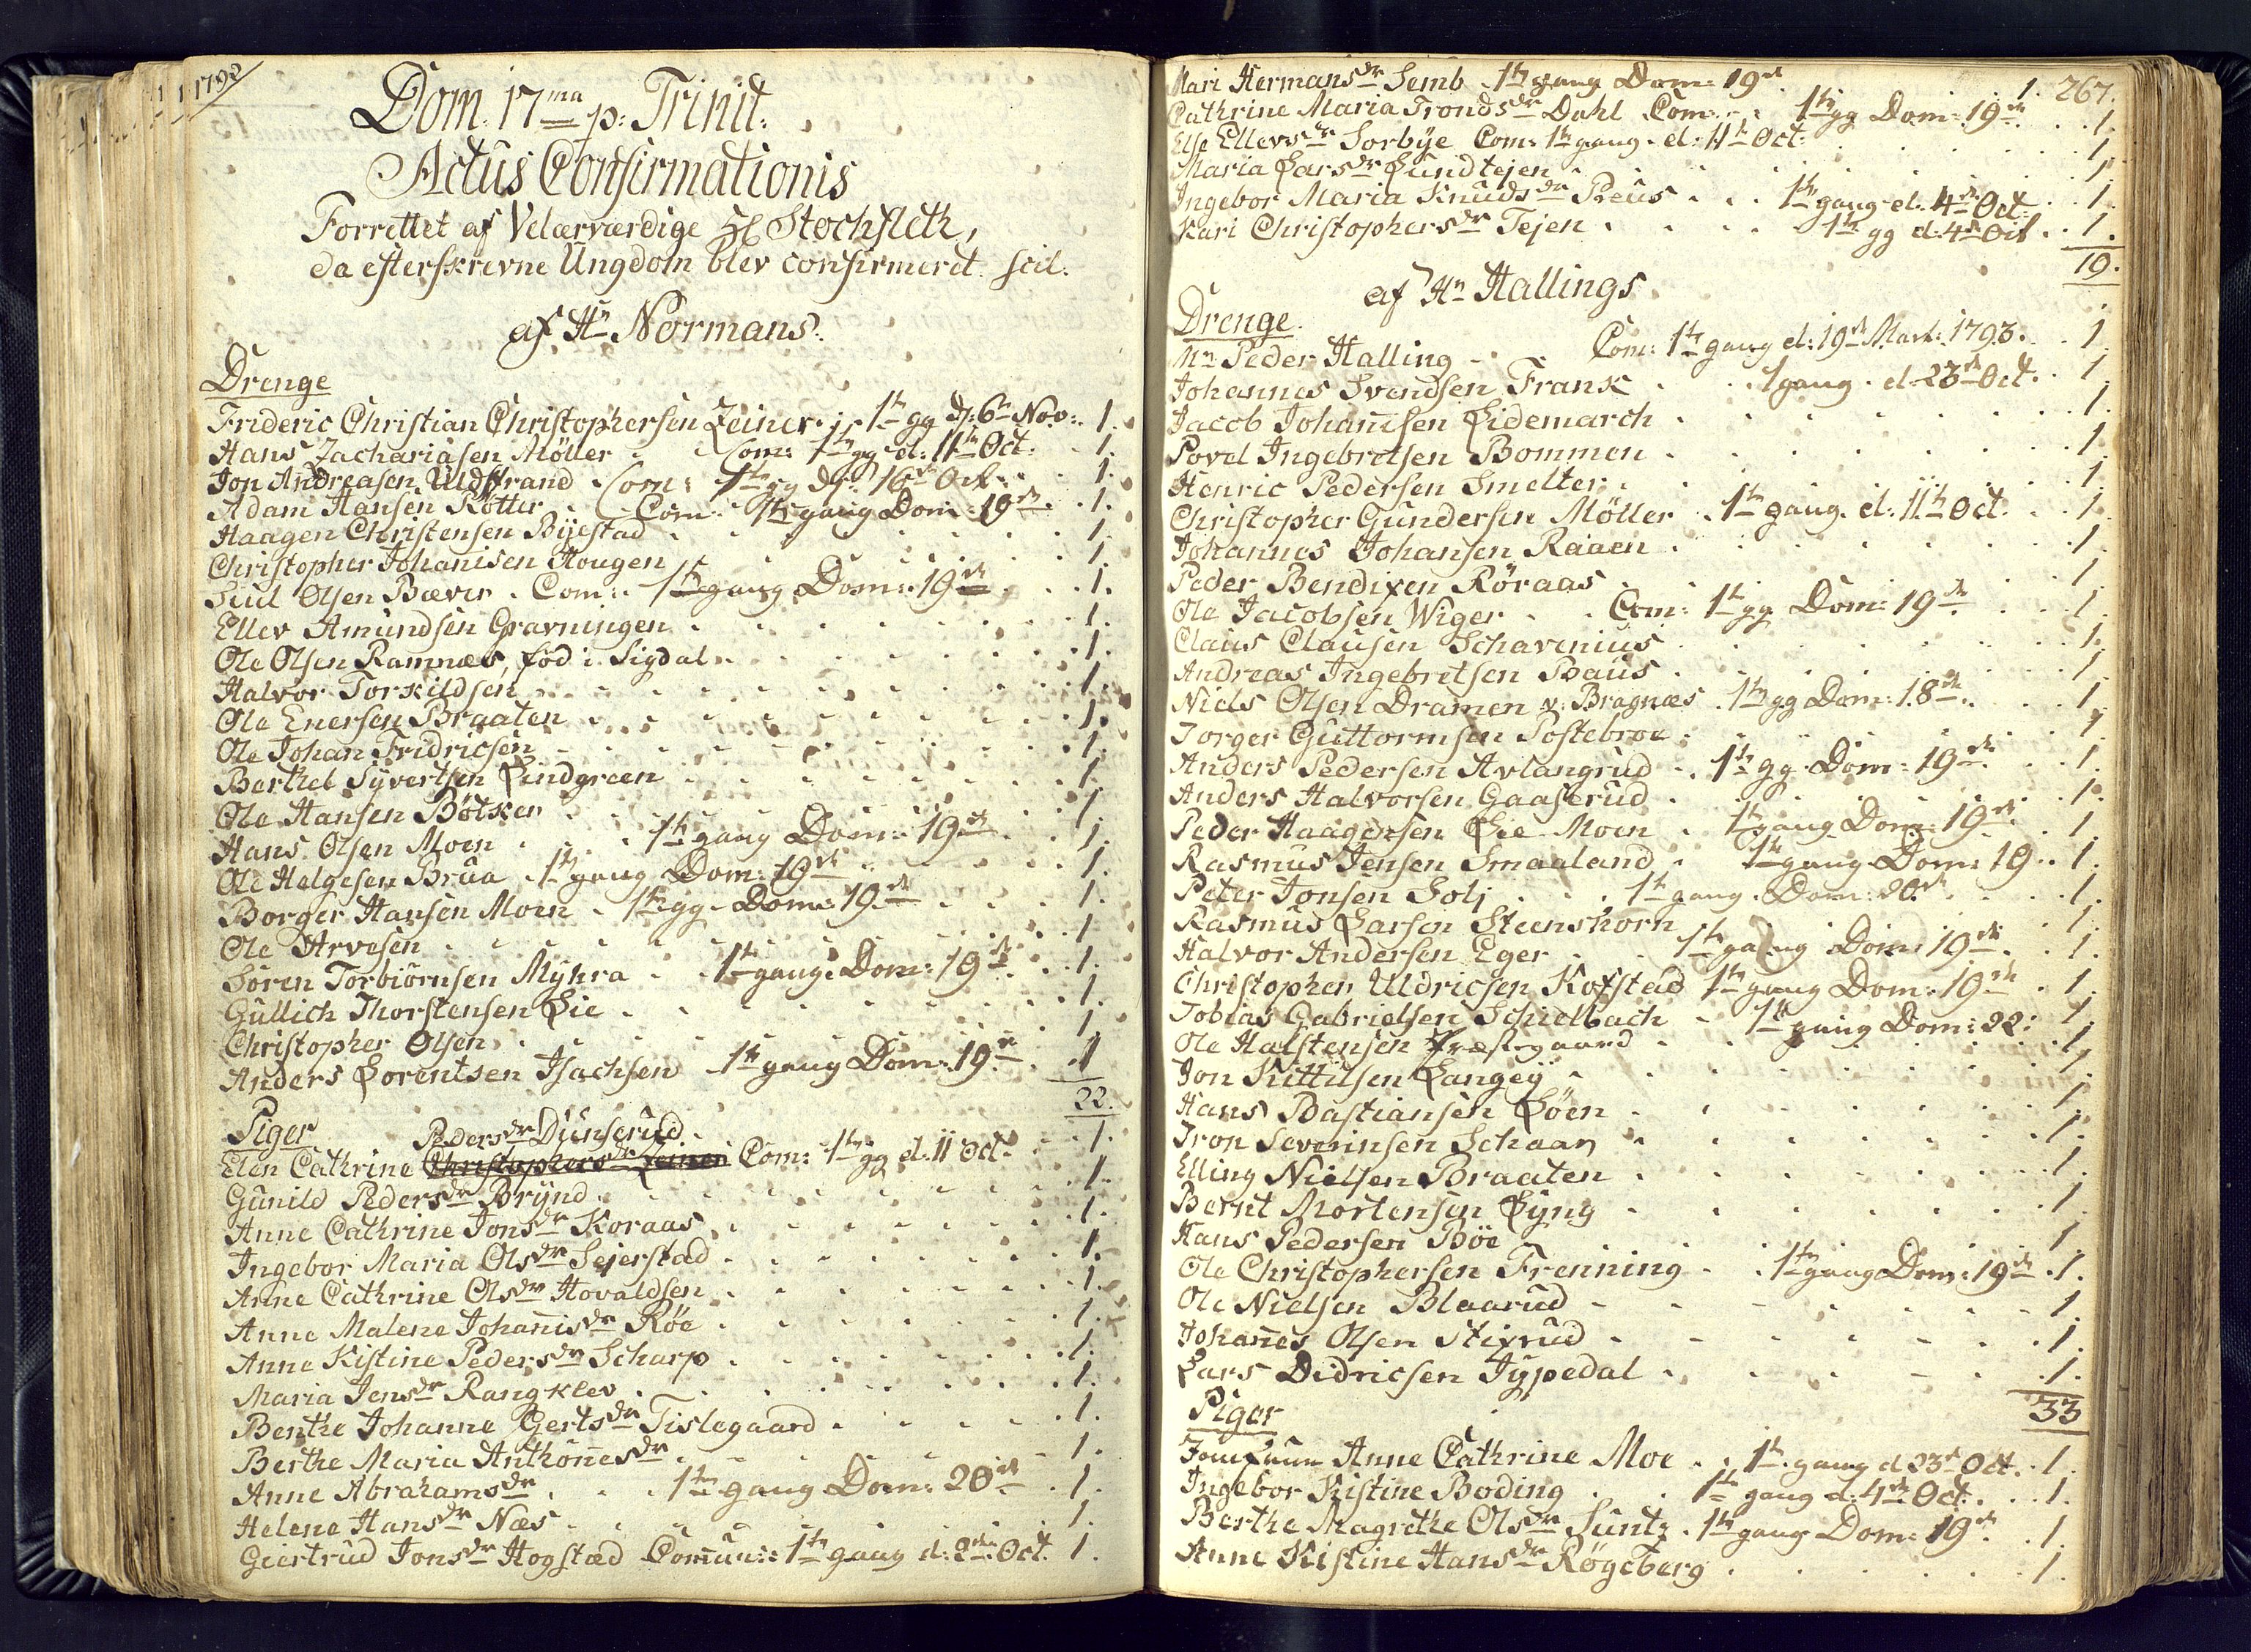 1792
Dom. 17ma p: Trinit:
Actus Confirmationis
Forrettet af Velærværdige Hl Stochfleth,
da efterskrevne Ungdom blev confirmeret. scil:
af Hn Normans.
Drenge
Frideric Christian Christophersen Zeiner. 1te gg d: 6te Nov: 1.
Hans Zachariasen Möller Com: 1te gg d: 11te Oct: 1.
Jon Andreasen Uldstrand Com: 1te gg d: 16de Oct. 1.
Adam Hansen Rötter Com: 1te gang Dom: 19de 1.
Haagen Christensen Byestad 1.
Christopher Johanisen Hougen 1.
Juul Olsen Bæver. Com: 1te gang Dom: 19de 1.
Ellev Amundsen Gravningen 1.
Ole Olsen Ramnæs, föd i Sigdal 1.
Halvor Torkildsen 1.
Ole Enersen Braaten 1.
Ole Johan Fridricsen 1.
Berthel Syvertsen Lindgreen 1.
Ole Hansen Bötker 1.
Hans Olsen Moen 1te gang Dom: 19de 1.
Ole Helgesen Brua 1te gang Dom: 19de 1.
Borger Hansen Moen 1te gg Dom: 19de 1.
Ole Arvesen 1.
Sören Torbiörnsen Myhra 1te gang Dom: 19de 1.
Gullich Thorstensen Lie 1.
Christopher Olsen 1.
Anders Lorentsen Isachsen 1te gang Dom: 19de 1
22.
Piger
Peders dr Dunserud
Elen Cathrine Christophers dr Zeiner Com: 1te gg d: 11 Oct 1.
Gunild Peders dr Brynd 1.
Anne Cathrine Jons dr Koraas 1.
Ingebor Maria Ols dr Sejerstad 1.
Anne Cathrine Ols dr Hovaldsen 1.
Anne Malene Johanis dr Röe 1.
Anne Kistine Peders dr Scharp 1.
Maria Jens dr Rangklev 1.
Benthe Johanne Gerts dr Tislegaard 1.
Berthe Maria Anthones dr 1.
Anne Abrahams dr 1te gang Dom: 20de 1.
Helene Hans dr Næs 1.
Giertrud Jons dr Hogstad Comun: 1te gang d: 2den Oct. 1.
267.
Mari Hermans dr Semb 1te gang Dom: 19de 1.
Cathrine Maria Tronds dr Dahl Com: 1te gg Dom: 19de 1.
Else Ellevs dr Sorbye Com: 1te gang d: 11te Oct: 1.
Maria Lars dr Lundtejen 1.
Ingebor Maria Knuds dr Preus 1te gang d: 4de Oct: 1.
Kari Christophers dr Tejen 1te gg d: 4de Oct 1.
19.
af Hn Hallings
Drenge.
Mn Peder Halling Com: 1te gang d: 19de Mart: 1793. 1
Johannes Svendsen Frank 1 gang d 23de Oct. 1
Jacob Johanisen Lidemarch 1.
Povel Ingebretsen Bommen 1.
Henric Pedersen Smelter 1.
Christopher Gundersen Möller 1te gang d: 11te Oct 1.
Johannes Johansen Raaen 1.
Peder Bendixen Röraas 1.
Ole Jacobsen Wiger Com: 1te gg Dom: 19de 1.
Claus Clausen Schavenius 1.
Andreas Ingebretsen Baus 1.
Niels Olsen Dramen v: Bragnæs 1te gg Dom: 18de 1.
Torger Guttormsen Tostebroe 1
Anders Pedersen Avlangrud 1te gg Dom: 19de 1.
Anders Halvorsen Gaaserud 1.
Peder Haagensen Lie Moen 1te gang Dom: 19de 1.
Rasmus Jensen Smaaland 1te gang Dom: 19 1.
Peter Jonsen Solj 1te gang Dom: 20de 1.
Rasmus Larsen Steenshorn 1.
Halvor Andersen Eger 1te gang Dom: 19de 1.
Christopher Uldricsen Kofstad 1te gang Dom: 19de 1.
Tobias Gabrielsen Schielbach 1te gang Dom: 22: 1
Ole Halstensen Præstegaard 1.
Jon Kittilsen Langey 1.
Hans Bastiansen Löen 1
Iron Severinsen Schaan 1.
Elling Nielsen Braaten 1.
Bernt Mortensen Lyng 1.
Hans Pedersen Böe 1
Ole Christophersen Frenning 1te gang Dom: 19de 1.
Ole Nielsen Blaarud 1.
Johanes Olsen Stixrud 1.
Lars Didricsen Jypedal 1.
33
Piger
Jomfrue Anne Cathrine Moe 1te gang d 23de Oct. 1.
Ingebor Kistine Boding 1te gang d: 4de Oct. 1.
Berthe Magrethe Ols dr Suntz 1te gang Dom: 19de 1.
Anne Kistine Hans dr Rögeberg 1.